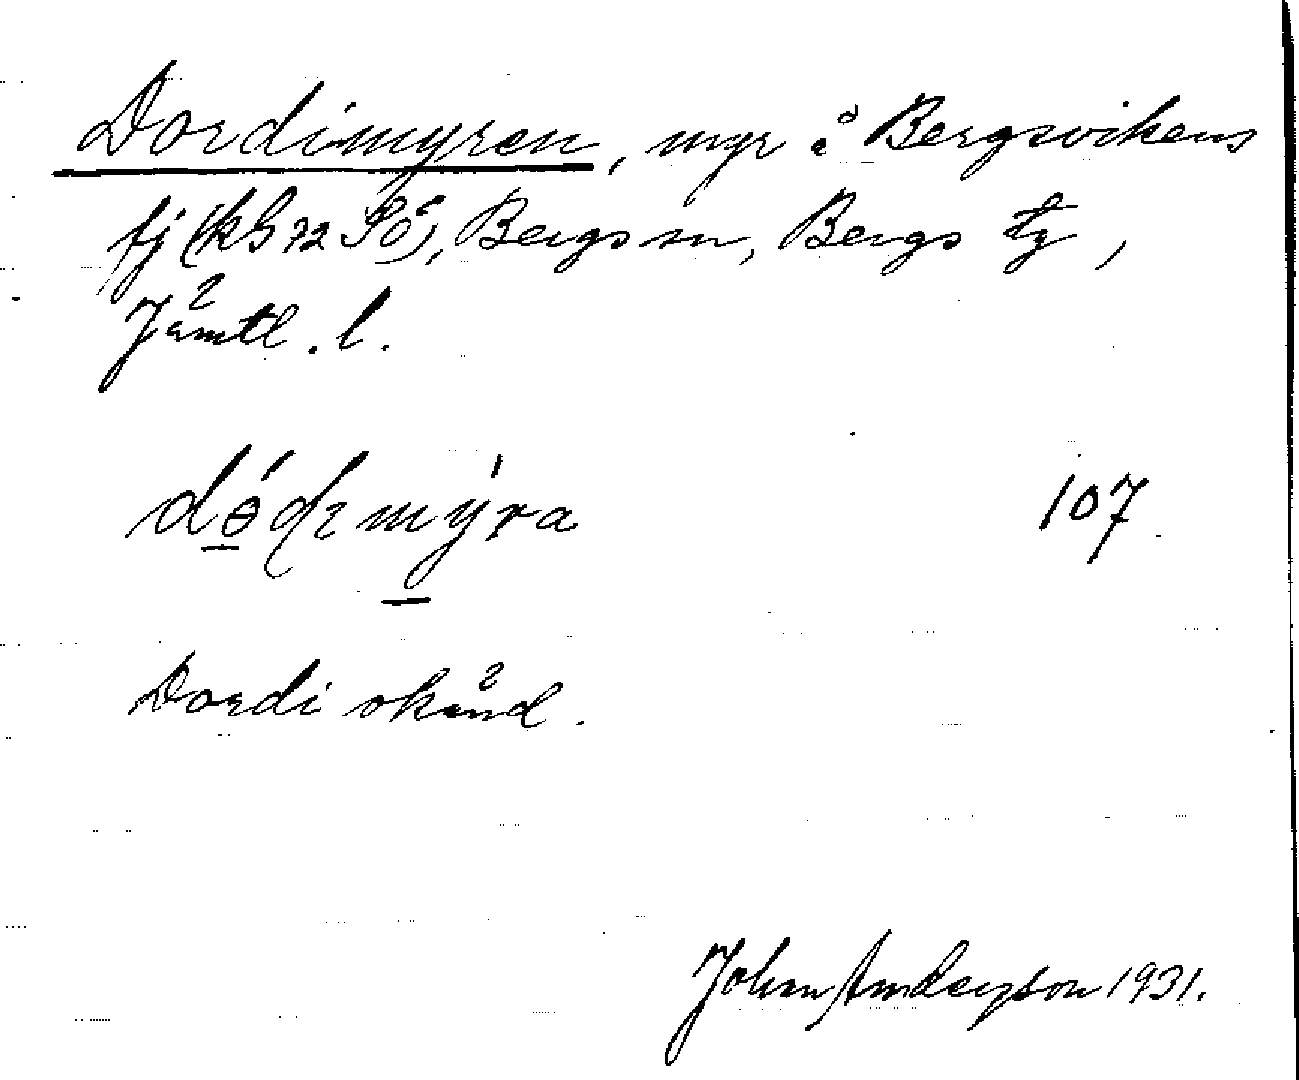 Dordimyren, myr å Bergsvikens
fj (kG 72 SÖ), Bergs sn, Bergs tg,
Jämtl. l.
107
Dordi okänd.
John Anderson 1931.